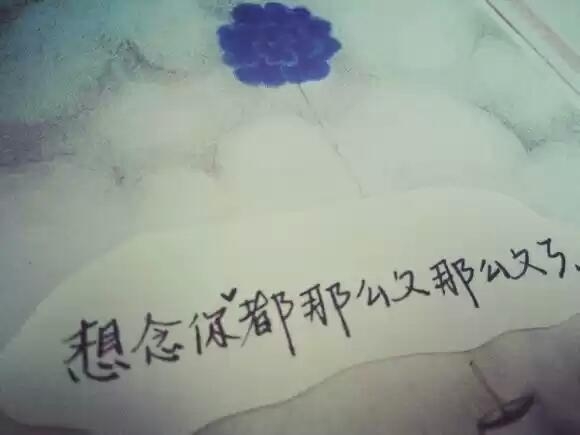 想念你都那么久那么久了、